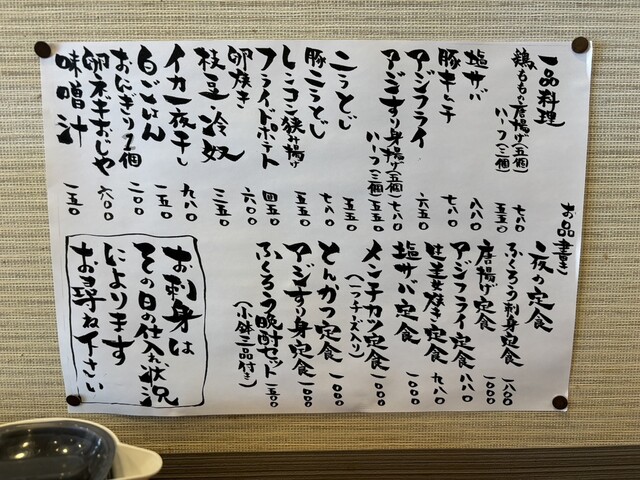 お品書き
一品料理
鶏もも唐揚げ(五個) 七八〇
ハーフ(三個) 五五〇
塩サバ 八八〇
豚キムチ 七八〇
アジフライ 六五〇
アジすり身揚げ(五個) 七八〇
ハーフ(三個) 五五〇
ニラとじ 五五〇
豚ニラとじ 七八〇
レンコン挟み揚げ 五五〇
フライドポテト 四五〇
卵焼き 六〇〇
枝豆・冷奴 三五〇
イカ一夜干し 九八〇
白ごはん 一五〇
おにぎり1個 二〇〇
卵ネギおじや 六〇〇
味噌汁 一五〇
夜の定食
ふくろう刺身定食 一八〇〇
唐揚げ定食 一〇〇〇
アジフライ定食 八八〇
生姜焼き定食 九八〇
塩サバ定食 一〇〇〇
メンチカツ定食 一〇〇〇
(一つチーズ入り)
とんかつ定食 一〇〇〇
アジすり身定食 一〇〇〇
ふくろう晩酌セット 一五〇〇
(小鉢三品付き)
お刺身は
その日の仕入れ状況
によります
お尋ね下さい